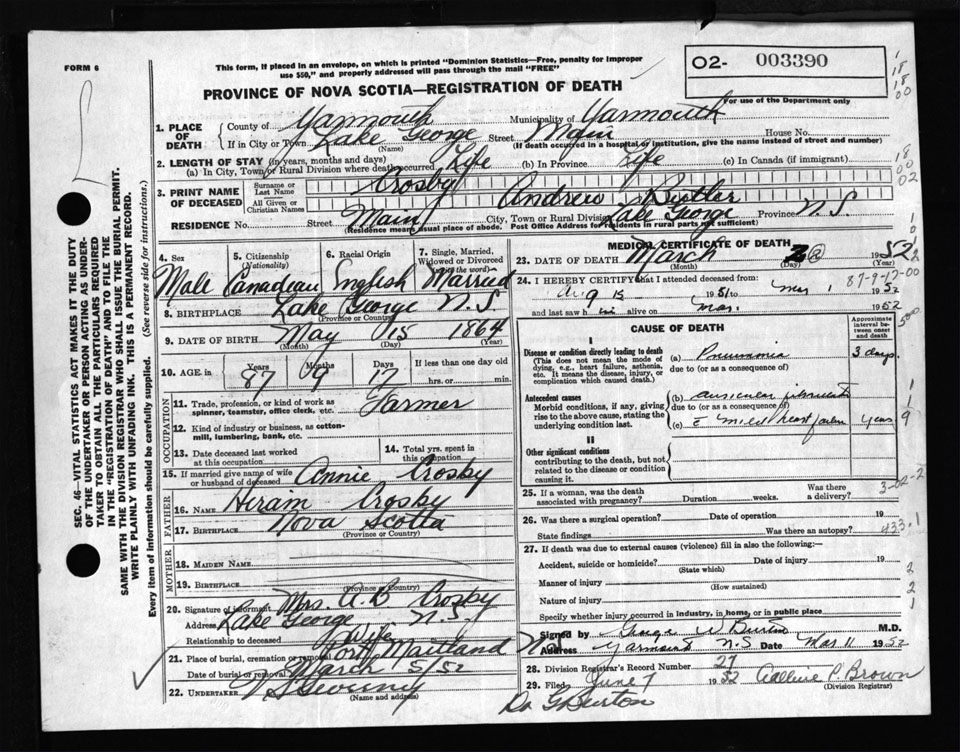 FORM 6
This form, if placed in an envelope, on which is printed "Dominion Statistics—Free, penalty for improper
use $50," and properly addressed will pass through the mail "FREE"
O2- 003390
For use of the Department only
PROVINCE OF NOVA SCOTIA—REGISTRATION OF DEATH
1. PLACE OF DEATH
County of Yarmouth Municipality of Yarmouth
If in City or Town Lake George (Name) Street Main House No.
(If death occurred in a hospital or institution, give the name instead of street and number)
2. LENGTH OF STAY (in years, months and days)
(a) In City, Town or Rural Division where death occurred Life (b) In Province Life (c) In Canada (if immigrant)
3. PRINT NAME OF DECEASED
Surname or Last Name Crosby
All Given or Christian Names Andrew Butler
RESIDENCE No. Street Main City, Town or Rural Division Lake George Province N.S.
(Residence means usual place of abode. Post Office Address for residents in rural parts not sufficient)
4. Sex Male
5. Citizenship (Nationality) Canadian
6. Racial Origin English
7. Single, Married, Widowed or Divorced (write the word) Married
8. BIRTHPLACE Lake George N.S.
(Province or Country)
9. DATE OF BIRTH May 15 1864
(Month) (Day) (Year)
10. AGE in Years 87 Months 9 Days 17 If less than one day old hrs. or min.
OCCUPATION
11. Trade, profession, or kind of work as spinner, teamster, office clerk, etc. Farmer
12. Kind of industry or business, as cotton-mill, lumbering, bank, etc.
13. Date deceased last worked at this occupation
14. Total yrs. spent in this occupation
15. If married give name of wife or husband of deceased Annie Crosby
FATHER
16. NAME Hiram Crosby
17. BIRTHPLACE Nova Scotia
(Province or Country)
MOTHER
18. MAIDEN NAME
19. BIRTHPLACE
(Province or Country)
20. Signature of informant Mrs. A.B Crosby
Address Lake George N.S.
Relationship to deceased Wife
21. Place of burial, cremation or removal Port Maitland
Date of burial or removal March 5/52
22. UNDERTAKER
(Name and address)
MEDICAL CERTIFICATE OF DEATH
23. DATE OF DEATH March 2 1952
(Month) (Day) (Year)
24. I HEREBY CERTIFY that I attended deceased from
Aug 15 1951 to Mar 1 1952
and last saw him alive on Mar. 1952
87-9-17-00
CAUSE OF DEATH
Approximate interval between onset and death
I
Disease or condition directly leading to death
(This does not mean the mode of dying, e.g., heart failure, asthenia, etc. It means the disease, injury, or complication which caused death.)
(a) Pneumonia 3 days
due to (or as a consequence of)
Antecedent causes
Morbid conditions, if any, giving rise to the above cause, stating the underlying condition last.
(b) auricular fibrillation
due to (or as a consequence of)
(c) c mild heart failure years
II
Other significant conditions
contributing to the death, but not related to the disease or condition causing it.
25. If a woman, was the death associated with pregnancy? Duration weeks. Was there a delivery?
26. Was there a surgical operation? Date of operation 19
State findings Was there an autopsy?
433.1
27. If death was due to external causes (violence) fill in also the following:—
Accident, suicide or homicide? (State which) Date of injury 19
Manner of injury (How sustained)
Nature of injury
Specify whether injury occurred in industry, in home, or in public place
Signed by George W Burton M.D.
Address Yarmouth N S Date Mar 11 1952
28. Division Registrar's Record Number 27
29. Filed June 7 1952 P. Brown
(Division Registrar)
Dr G Burton
SEC. 46—VITAL STATISTICS ACT MAKES IT THE DUTY
OF THE UNDERTAKER OR PERSON ACTING AS UNDER-
TAKER TO OBTAIN ALL THE PARTICULARS REQUIRED
IN THE "REGISTRATION OF DEATH" AND TO FILE THE
SAME WITH THE DIVISION REGISTRAR WHO SHALL ISSUE THE BURIAL PERMIT.
WRITE PLAINLY WITH UNFADING INK. THIS IS A PERMANENT RECORD.
Every item of information should be carefully supplied. (See reverse side for instructions.)